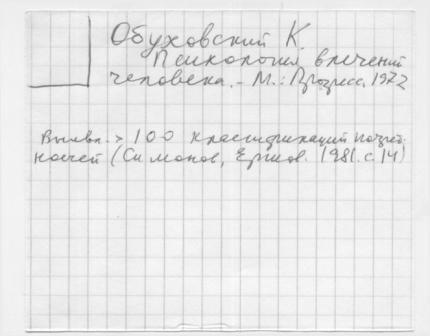 Обуховский К.
Психология влечений
человека. - М.: Прогресс, 1972
Выявл. > 100 классификаций потреб-
ностей (Симонов, Ершов. 1981. с. 14)